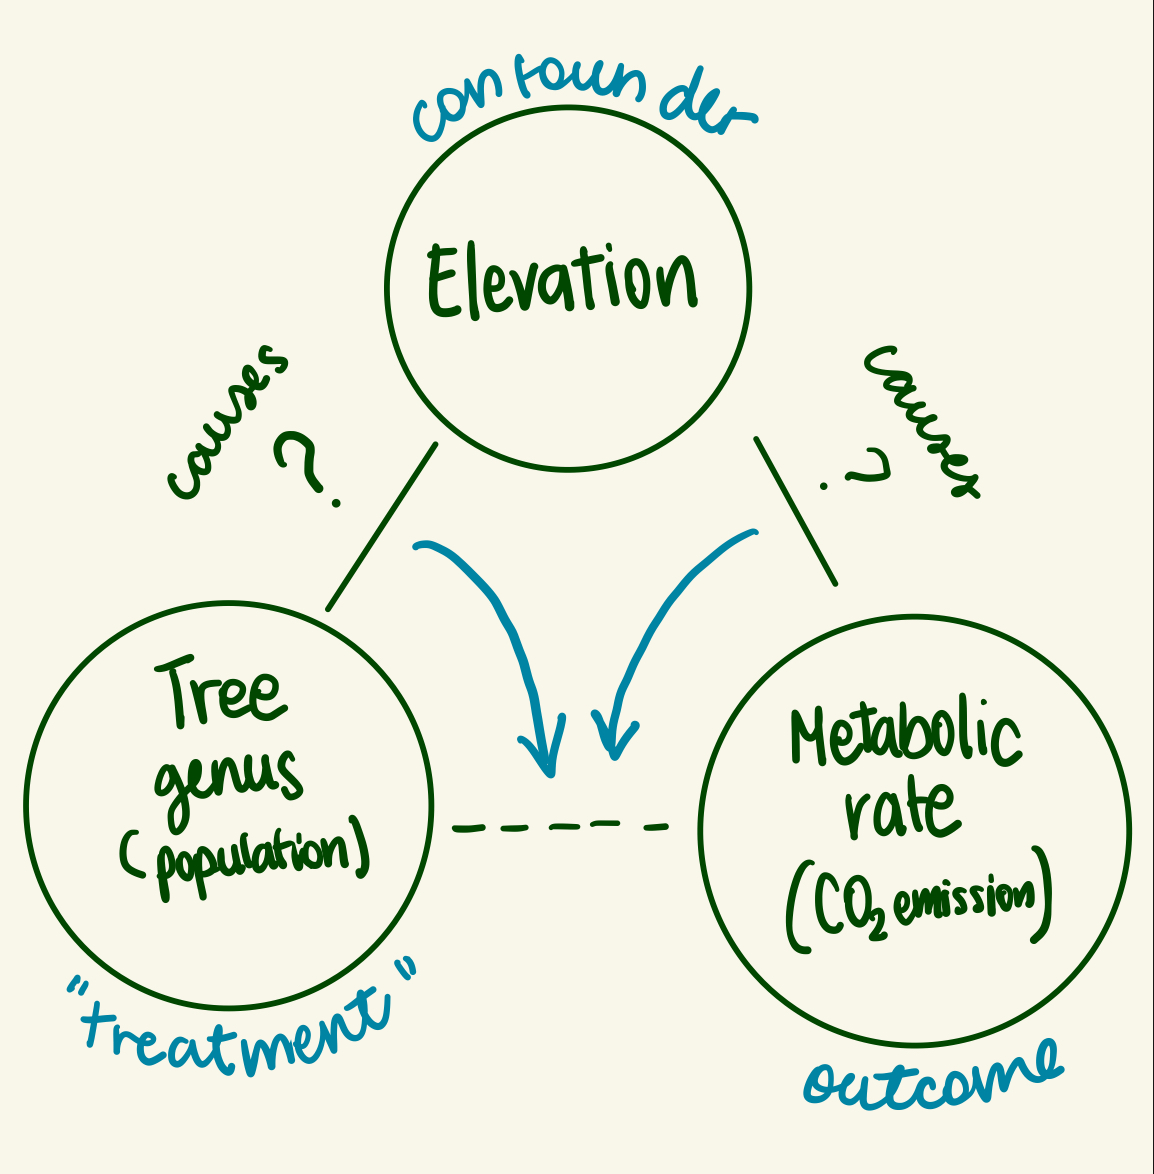 confounder
Elevation
causes
?
causes
?
Tree
genus
(population)
Metabolic
rate
(CO₂ emission)
"treatment"
outcome